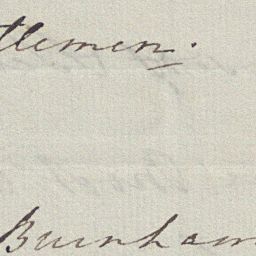 tlemen.
Burnham